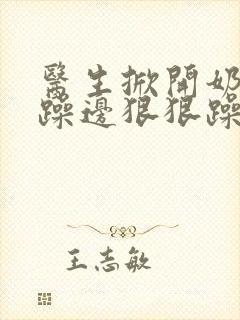 醫生掀開奶
躁邊狠狠躁
王志敏